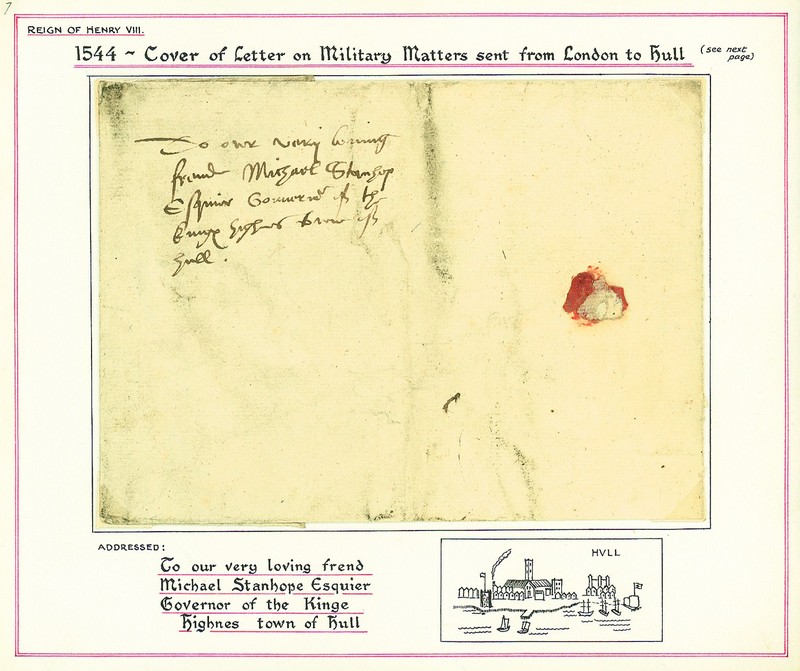 7
REIGN OF HENRY VIII.
1544 ~ Cover of Letter on Military Matters sent from London to Hull (see next page)
To our very loving
frend Michael Stanhop
Esquier Governor of the
kings highnes towne of
hull.
ADDRESSED:
To our very loving frend
Michael Stanhope Esquier
Governor of the Kinge
Highnes town of Hull
HVLL